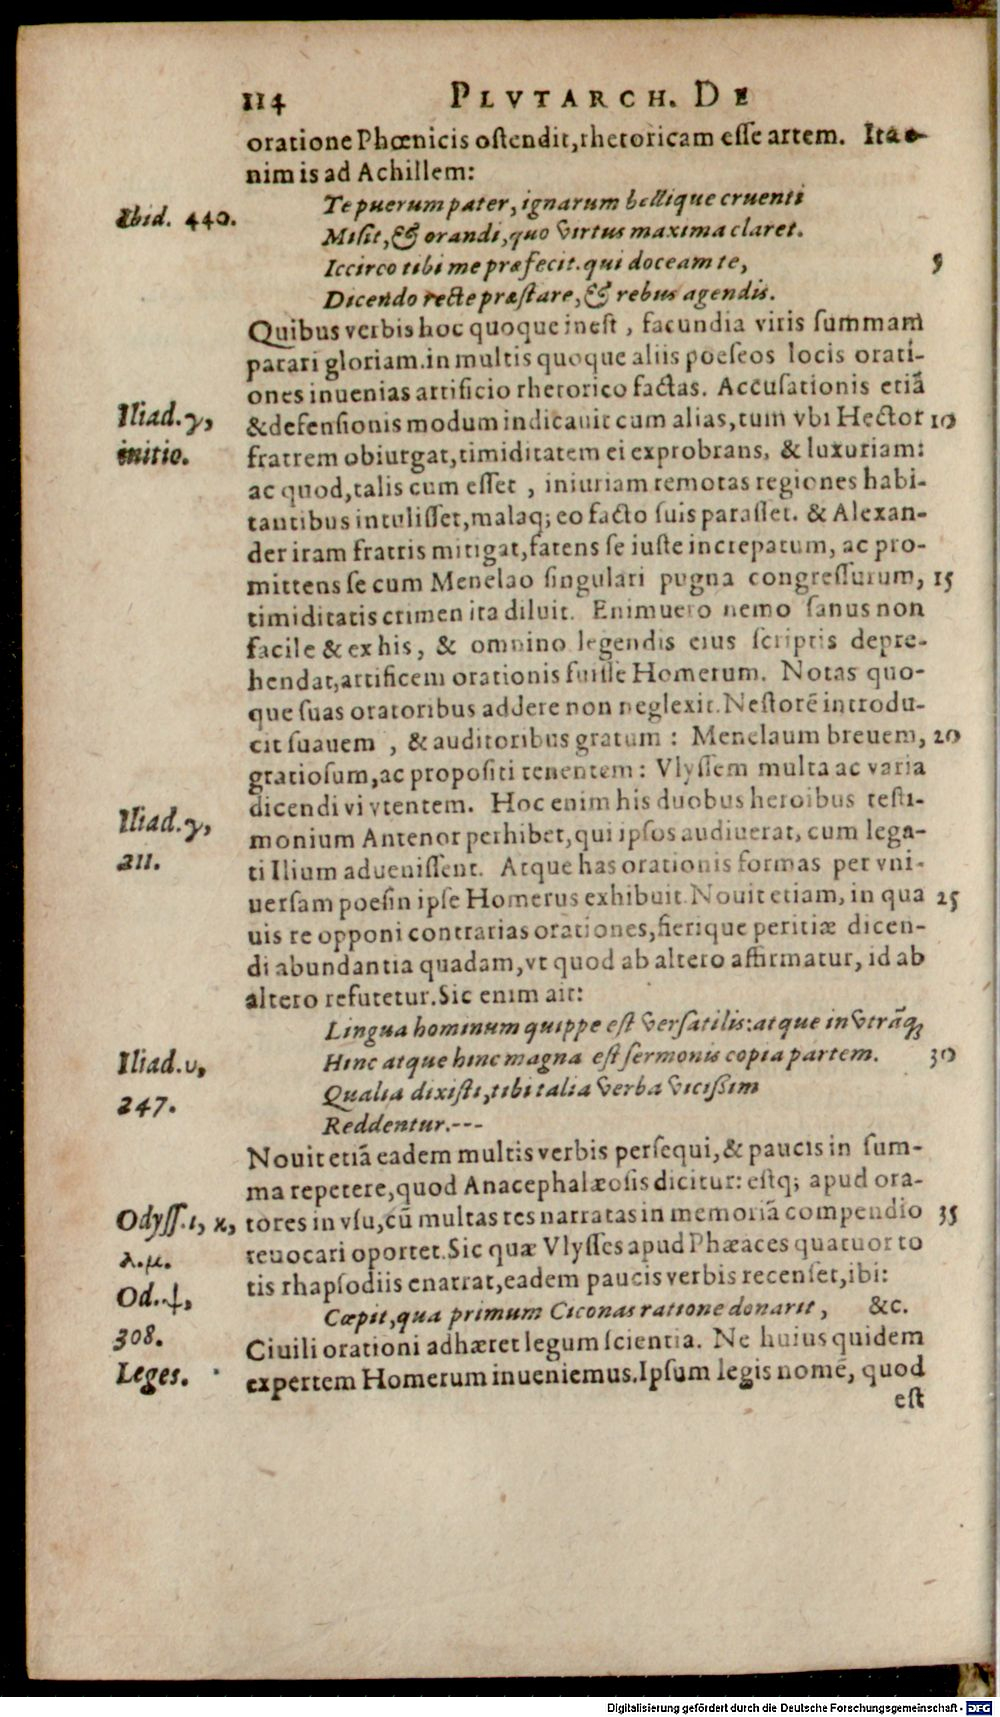 114 PLVTARCH. DE
oratione Phœnicis ostendit, rhetoricam esse artem. Ita e-
nim is ad Achillem:
Te puerum pater, ignarum bellique cruenti
Ibid. 440.
Misit, & orandi, quo virtus maxima claret.
Iccirco tibi me præfecit. qui doceam te, 5
Dicendo recte præstare, & rebus agendis.
Quibus verbis hoc quoque inest, facundia viris summam
parari gloriam. in multis quoque aliis poeseos locis orati-
ones inuenias artificio rhetorico factas. Accusationis etiā
Iliad. γ,
& defensionis modum indicauit cum alias, tum vbi Hector 10
initio.
fratrem obiurgat, timiditatem ei exprobrans, & luxuriam:
ac quod, talis cum esset, iniuriam remotas regiones habi-
tantibus intulisset, malaq; eo facto suis parasset. & Alexan-
der iram fratris mitigat, fatens se iuste increpatum, ac pro-
mittens se cum Menelao singulari pugna congressurum, 15
timiditatis crimen ita diluit. Enimuero nemo sanus non
facile & ex his, & omnino legendis eius scriptis depre-
hendat, artificem orationis fuisse Homerum. Notas quo-
que suas oratoribus addere non neglexit. Nestorē introdu-
cit suauem, & auditoribus gratum: Menelaum breuem, 20
gratiosum, ac propositi tenentem: Vlyssem multa ac varia
dicendi vi vtentem. Hoc enim his duobus heroibus testi-
Iliad. γ,
monium Antenor perhibet, qui ipsos audiuerat, cum lega-
211.
ti Ilium aduenissent. Atque has orationis formas per vni-
uersam poesin ipse Homerus exhibuit. Nouit etiam, in qua 25
uis re opponi contrarias orationes, fierique peritiæ dicen-
di abundantia quadam, vt quod ab altero affirmatur, id ab
altero refutetur. Sic enim ait:
Lingua hominum quippe est versatilis: atque in vtrāq;
Iliad. υ,
Hinc atque hinc magna est sermonis copia partem. 30
247.
Qualia dixisti, tibi talia verba vicißim
Reddentur.---
Nouit etiā eadem multis verbis persequi, & paucis in sum-
ma repetere, quod Anacephalæosis dicitur: estq; apud ora-
Odyss. ι, κ,
tores in vsu, cū multas res narratas in memoriā compendio 35
λ. μ.
reuocari oportet. Sic quæ Vlysses apud Phæaces quatuor to
tis rhapsodiis enarrat, eadem paucis verbis recenset, ibi:
Od. ψ,
308.
Cœpit, qua primum Ciconas ratione donarit, &c.
Ciuili orationi adhæret legum scientia. Ne huius quidem
Leges.
expertem Homerum inueniemus. Ipsum legis nomē, quod
est
Digitalisierung gefördert durch die Deutsche Forschungsgemeinschaft - DFG